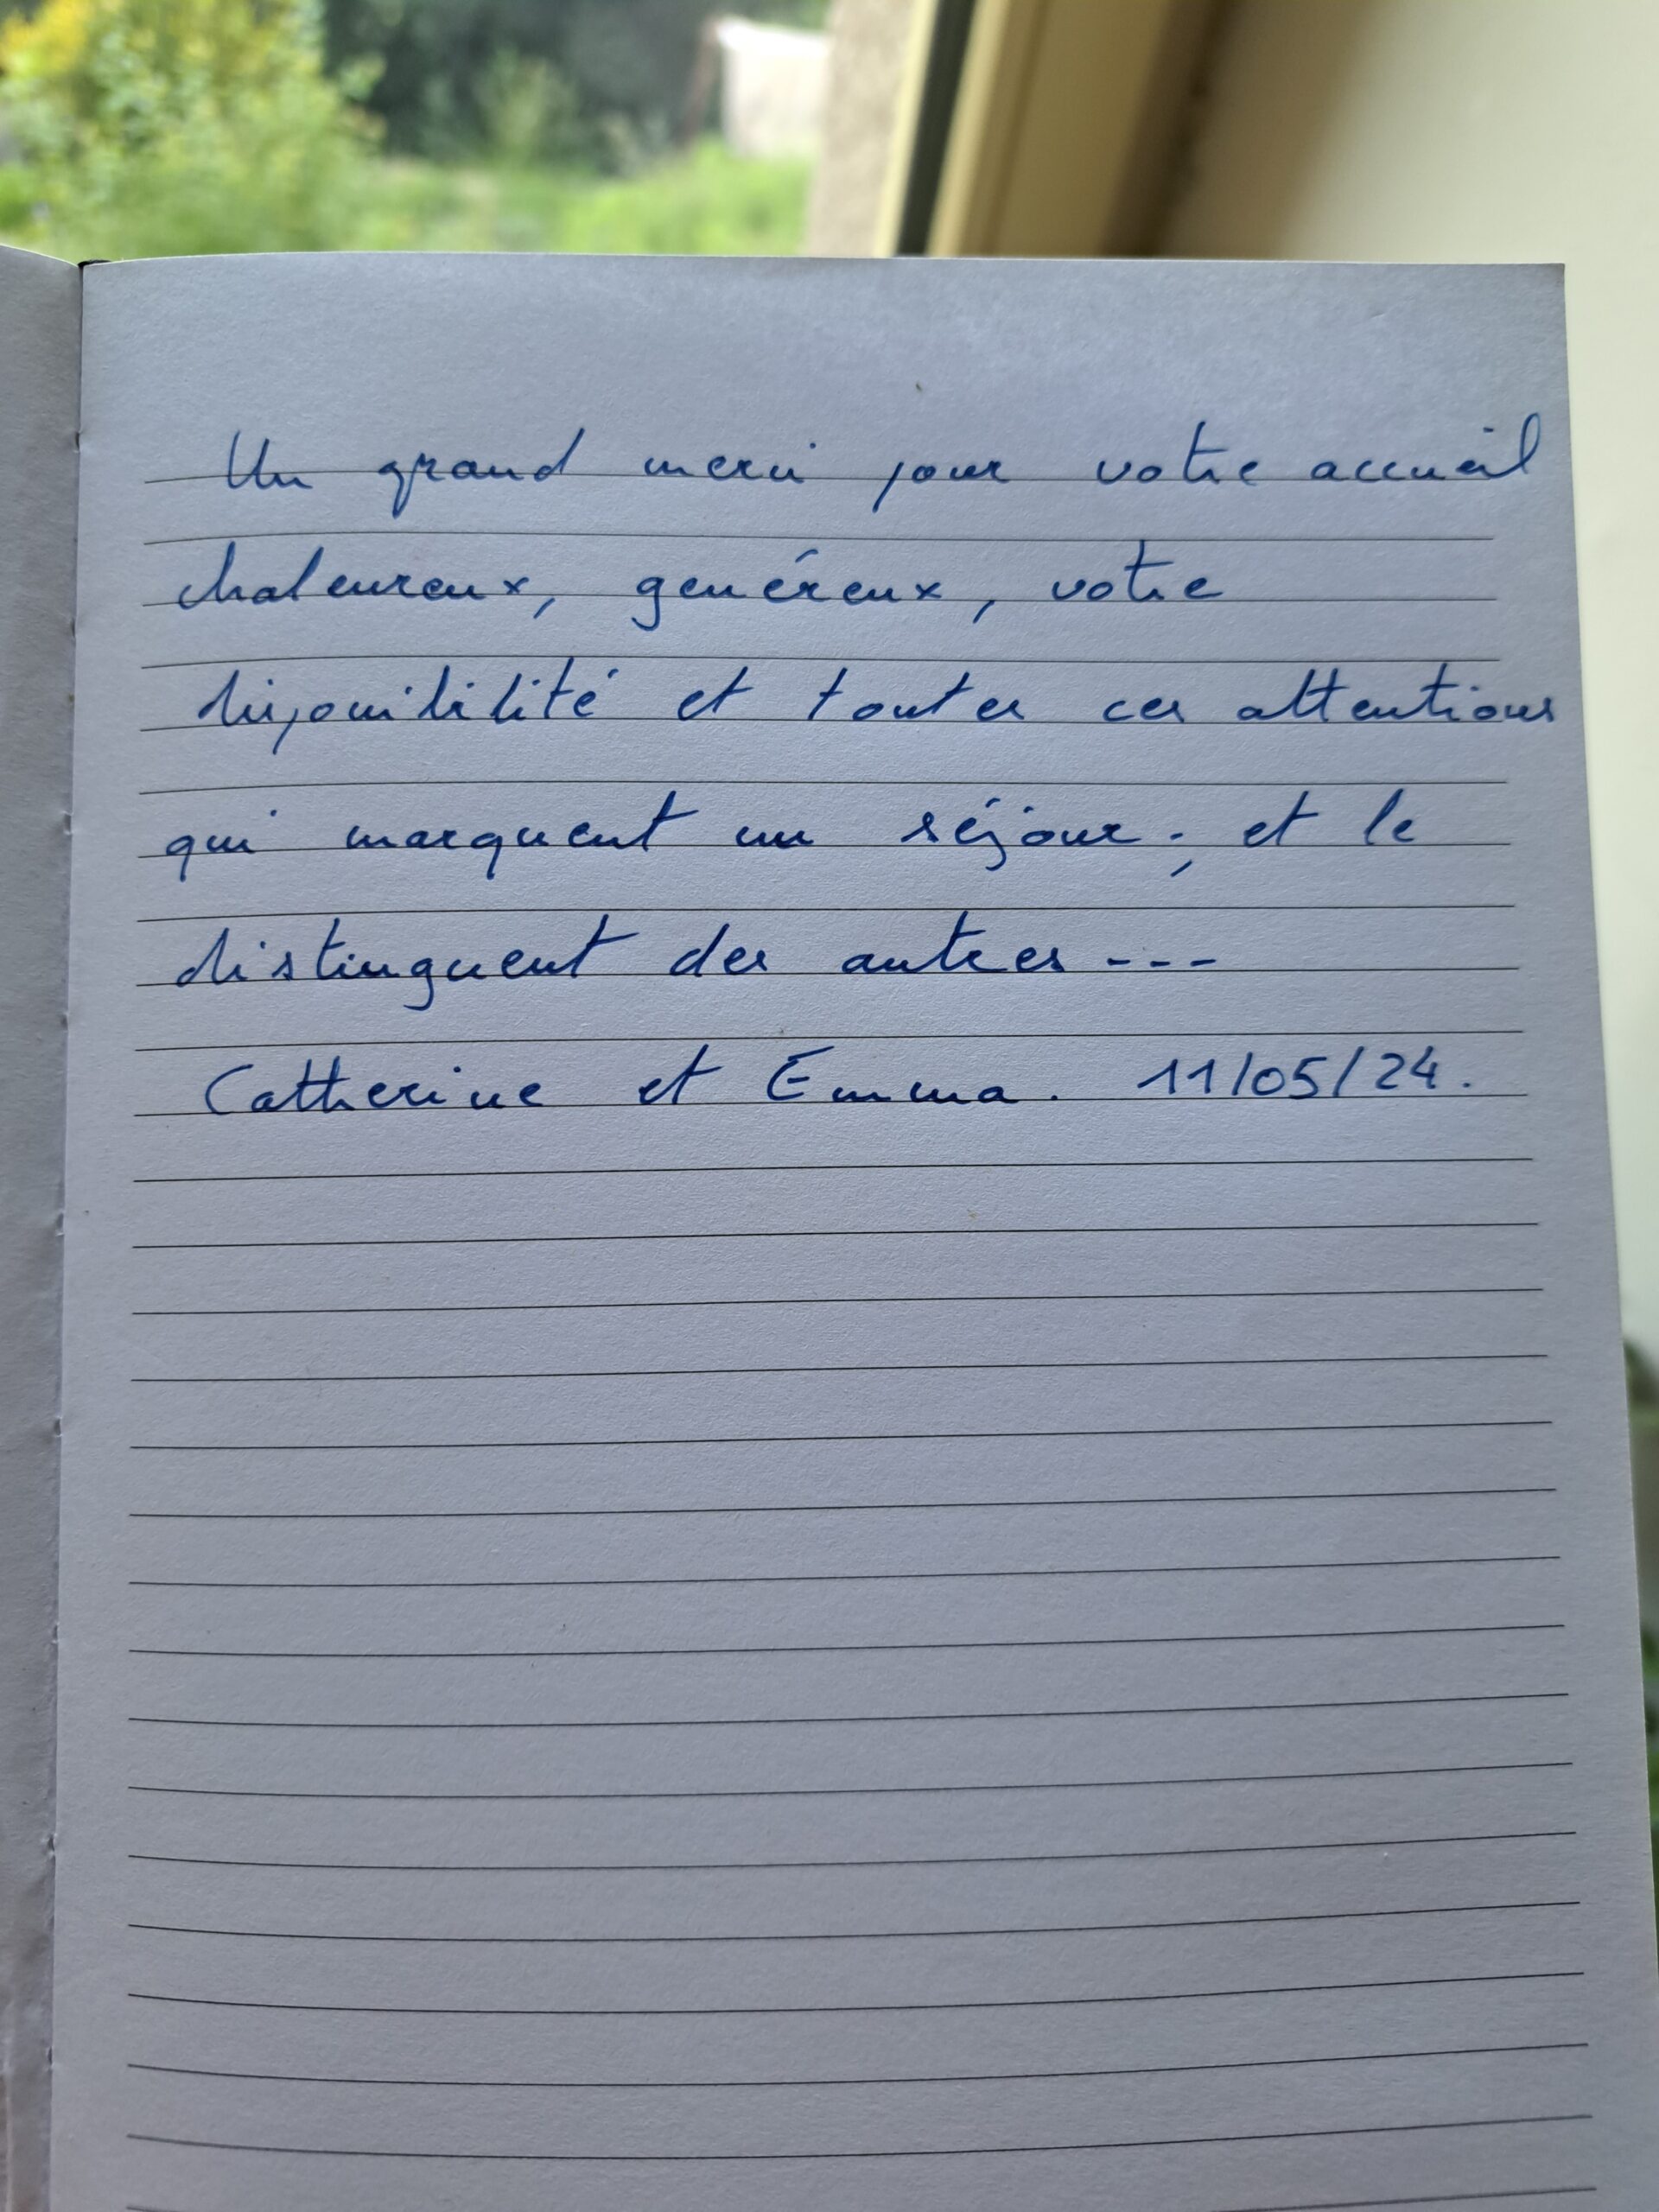 Un grand merci pour votre accueil
chaleureux, genéreux, votre
disponibilité et toutes ces attentions
qui marquent un séjour ; et le
distinguent des autres ---
Catherine et Emma. 11/05/24.